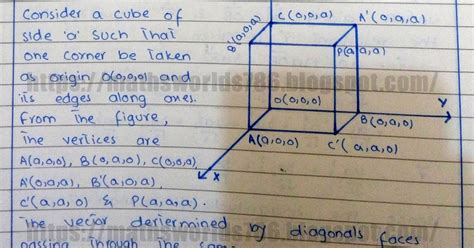 Consider a cube of
side 'a' such that
one corner be taken
as origin O(0,0,0) and
its edges along axes.
From the figure,
The vertices are
A(a,0,0), B(0,a,0), C(0,0,a),
A'(0,a,a), B'(a,0,a),
C'(a,a,0) & P(a,a,a).
The vector deriermined by diagonals faces
passing through the same
C(0,0,a)
A'(0,a,a)
B'(a,0,a)
P(a,a,a)
O(0,0,0)
Y
B(0,a,0)
A(a,0,0)
C'(a,a,0)
X
https://mathsworlds786.blogspot.com/
https://mathsworlds786.blogspot.com/